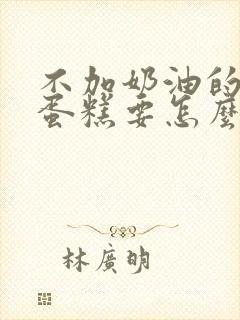 不加奶油的
蛋糕要怎麼
林廣明